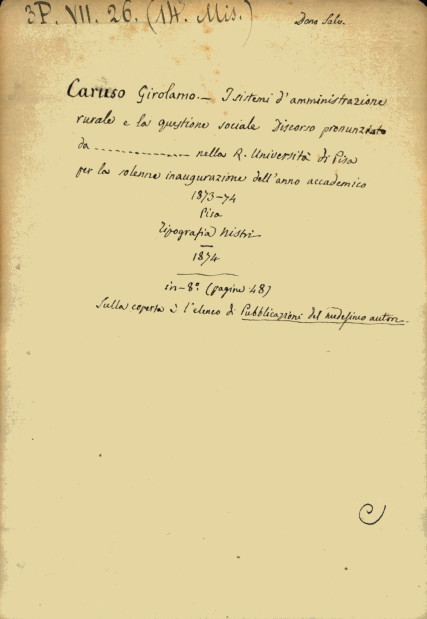 3P. VII. 26. (14. Mis.)
Dono Salv.
Caruso Girolamo. — I sistemi d'amministrazione
rurale e la questione sociale Discorso pronunziato
da ------------ nella R. Università di Pisa
per la solenne inaugurazione dell'anno accademico
1873-74
Pisa
Tipografia Nistri
1874
in-8.° (pagine 48)
Sulla coperta è l'elenco di Pubblicazioni del medesimo autore.